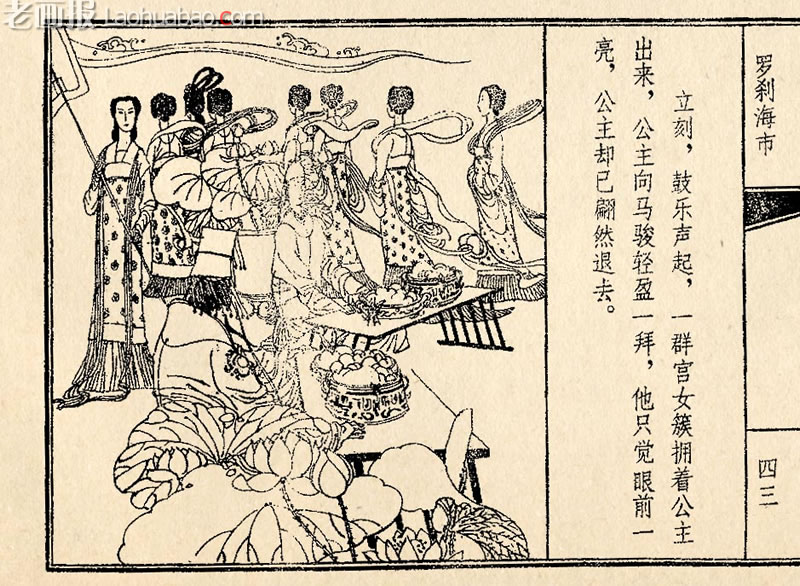 老画报
Laohuabao.com
罗刹海市
立刻，鼓乐声起，一群宫女簇拥着公主
出来，公主向马骏轻盈一拜，他只觉眼前一
亮，公主却已翩然退去。
四三